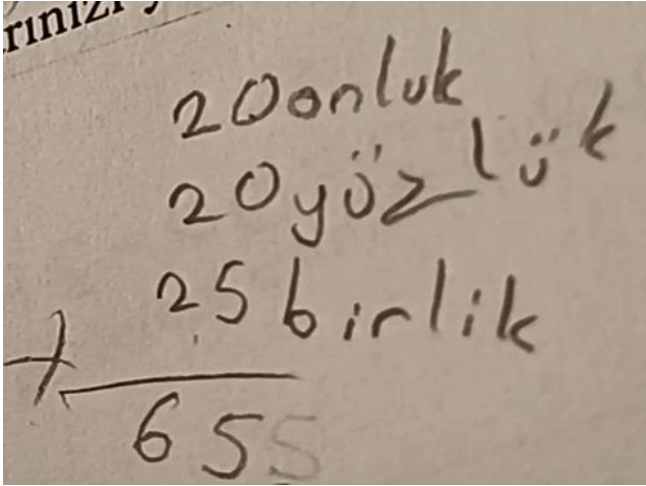 rınızı
20onluk
20yüzlük
25birlik
+
655